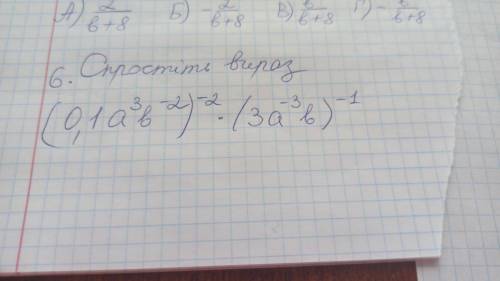 А) 2/(b+8) Б) -2/(b+8) В) b/(b+8) Г) -b/(b+8)
6. Спростіть вираз
(0,1a³b⁻²)⁻² · (3a⁻³b)⁻¹